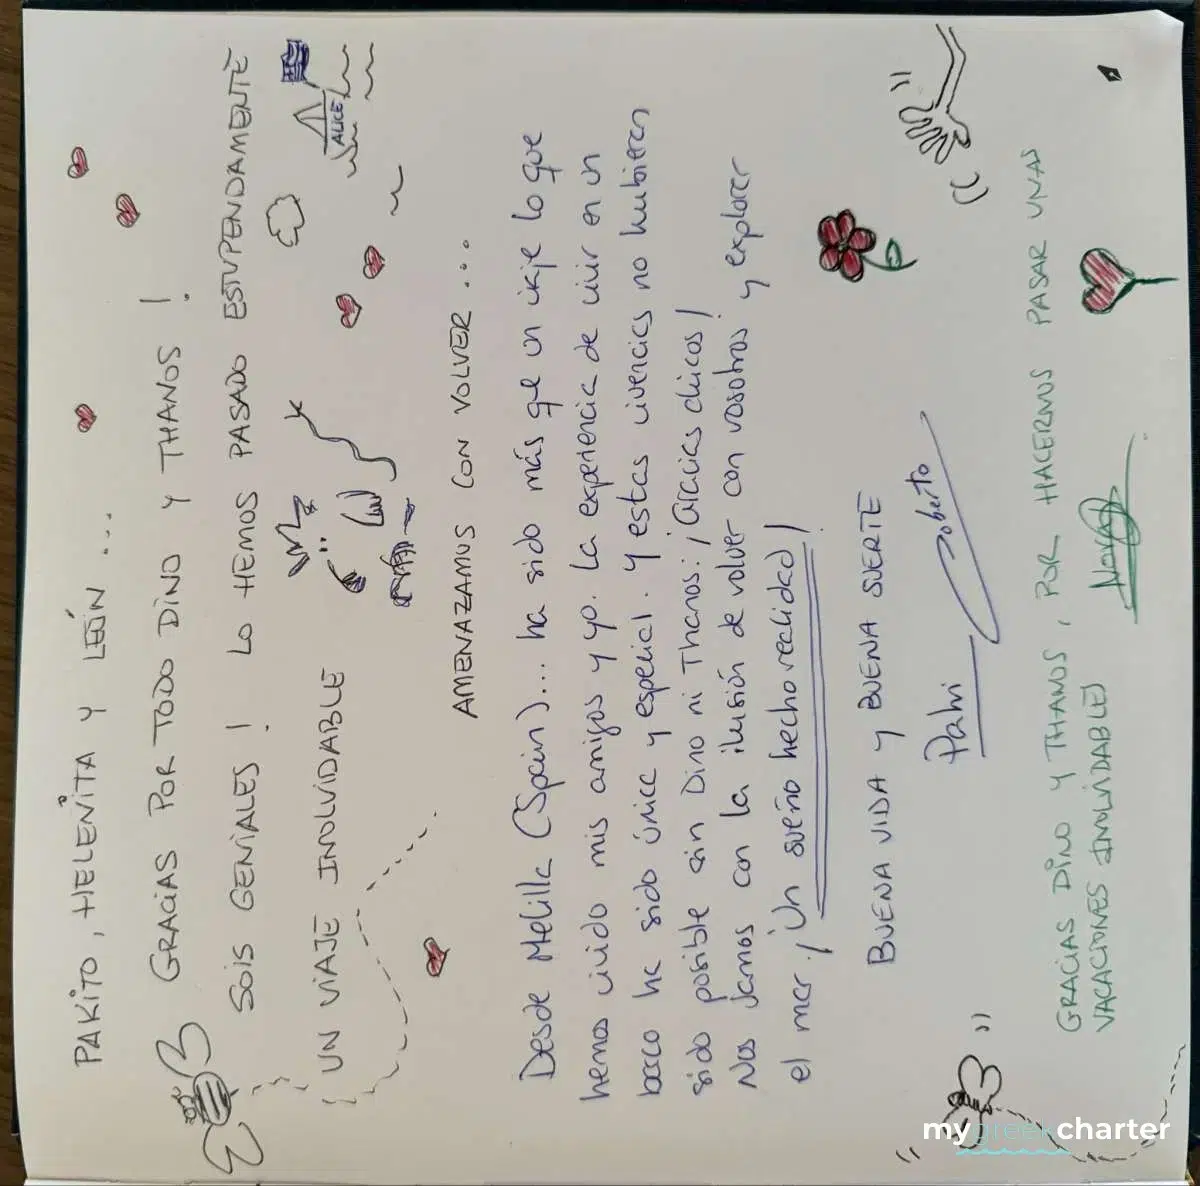 PAKITO, HELENITA Y LEÓN...
GRACIAS POR TODO DINO Y THANOS!
SOIS GENIALES! LO HEMOS PASADO ESTUPENDAMENTE
UN VIAJE INOLVIDABLE
ALICE
AMENAZAMOS CON VOLVER...
Desde Melilla (Spain)... ha sido más que un viaje lo que
hemos vivido mis amigos y yo. La experiencia de vivir en un
barco ha sido única y especial. Y estas vivencias no hubieran
sido posible sin Dino ni Thanos: ¡Gracias chicos!
Nos vamos con la ilusión de volver con vosotros y explorar
el mar. ¡Un sueño hecho realidad!
BUENA VIDA Y BUENA SUERTE
Palmi Roberto
GRACIAS DINO Y THANOS, POR HACERNOS PASAR UNAS
VACACIONES INOLVIDABLES
mygreekcharter